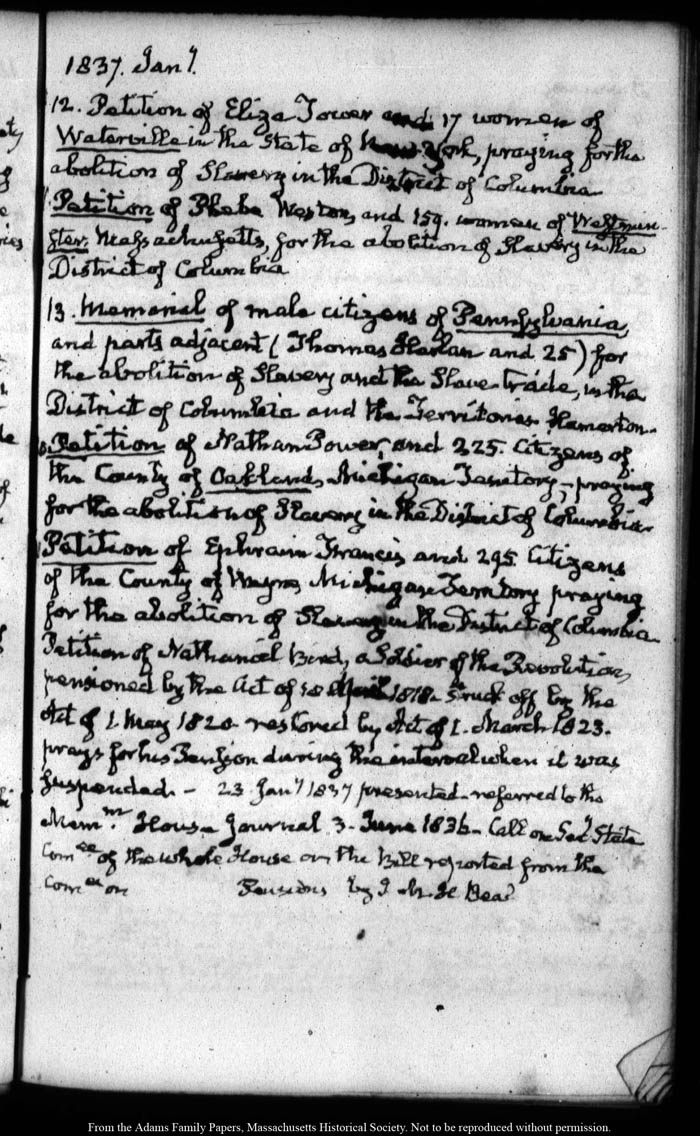 1837. Jany.
12. Petition of Eliza Tower and 17 women of
Waterville in the State of New York, praying for the
abolition of Slavery in the District of Columbia
Petition of Phebe Weston, and 159. women of Westmin-
ster. Massachusetts, for the abolition of Slavery in the
District of Columbia
13. Memorial of male citizens of Pennsylvania,
and parts adjacent (Thomas Harlan and 25) for
the abolition of Slavery and the Slave trade, in the
District of Columbia and the Territories Hamorton.
Petition of Nathan Power, and 225. Citizens of
the County of Oakland, Michigan Territory,—praying
for the abolition of Slavery in the District of Columbia
Petition of Ephraim Francis and 295. Citizens
of the County of Wayne Michigan Territory praying
for the abolition of Slavery in the District of Columbia
Petition of Nathaniel Bird, a Soldier of the Revolution,
pensioned by the Act of 18 April 1818. Struck off by the
Act of 1. May 1820 restored by Act of 1. March 1823.
prays for his Pension during the interval when it was
suspended.— 23 Jany 1837 presented. referred to the
House Journal 3. June 1836. Call on Secy State
Comee. of the whole House on the Bill reported from the
Comee on Pensions by
From the Adams Family Papers, Massachusetts Historical Society. Not to be reproduced without permission.